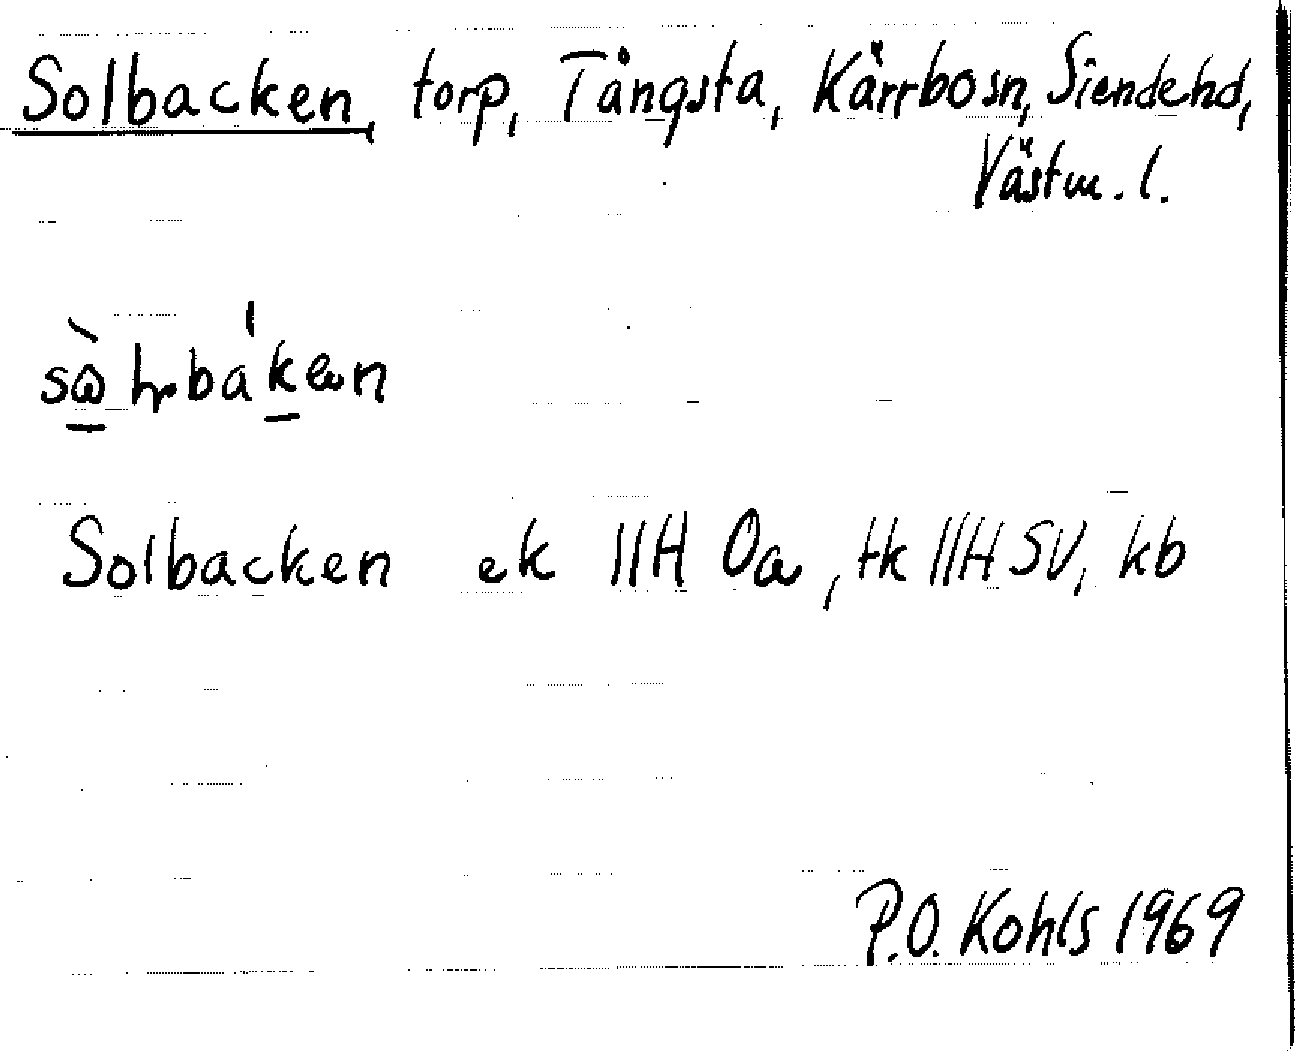 Solbacken, torp, Tångsta, Kärrbo sn, Siende hd,
Västm. l.
Solbacken ek 11H 0a, tk 11H SV, kb
P.O. Kohls 1969